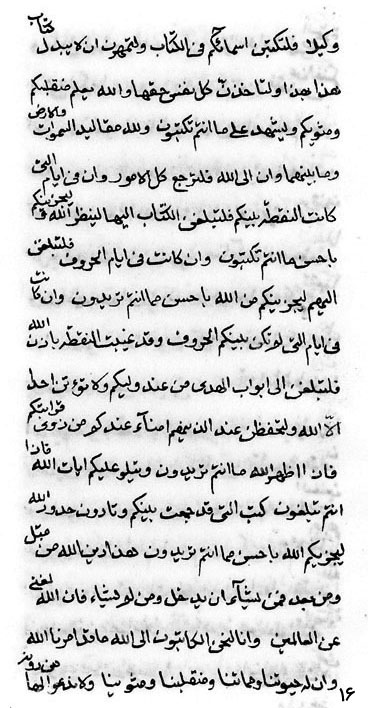 وكيلا فلتكتبن اسمائكم فى الكتاب ولتمهرون ان لا يبدل كتاب
هذا بهذا ولتاخذن كل نفس حقها والله يعلم منقلبكم
ومثويكم وليشهد على ما انتم تكتبون ولله مقاليد السموات والارض
وما بينهما وان الى الله فلترجع كل الامور وان فى ايام التى
كانت النقطة بينكم فلتبلغن الكتاب اليها لينظر الله فيه ليجزينكم
باحسن ما انتم تكتبون وان كانت فى ايام الحروف فلتبلغن
اليهم ليجزينكم من الله باحسن ما انتم تريدون وان كانت
فى ايام التى لم تكن بينكم الحروف وقد غيبت النقطة باذن الله
فلتبلغن الى ابواب الهدى من عند وليكم ولا تؤتن احدا
الا الله ولتحفظن عند الذينهم امناء عندكم من ذوى قرابتكم
فان اظهر الله ما انتم تريدون ويتلو عليكم ايات الله فاذا
انتم تبلغون كتب التى قد جمعت بينكم وتادون حدود الله
ليجزيكم الله باحسن ما انتم تريدون هذا دين الله من قبل
ومن بعد فمن يشاء ان يدخل ومن لم يشاء فان الله لغنى
عن العالمين وانا نحن الكاتبون الى الله ما قد امرنا الله
وان له حيوتنا ومماتنا ومنقلبنا ومثوينا ولا ندعو الها من دونه
١۶